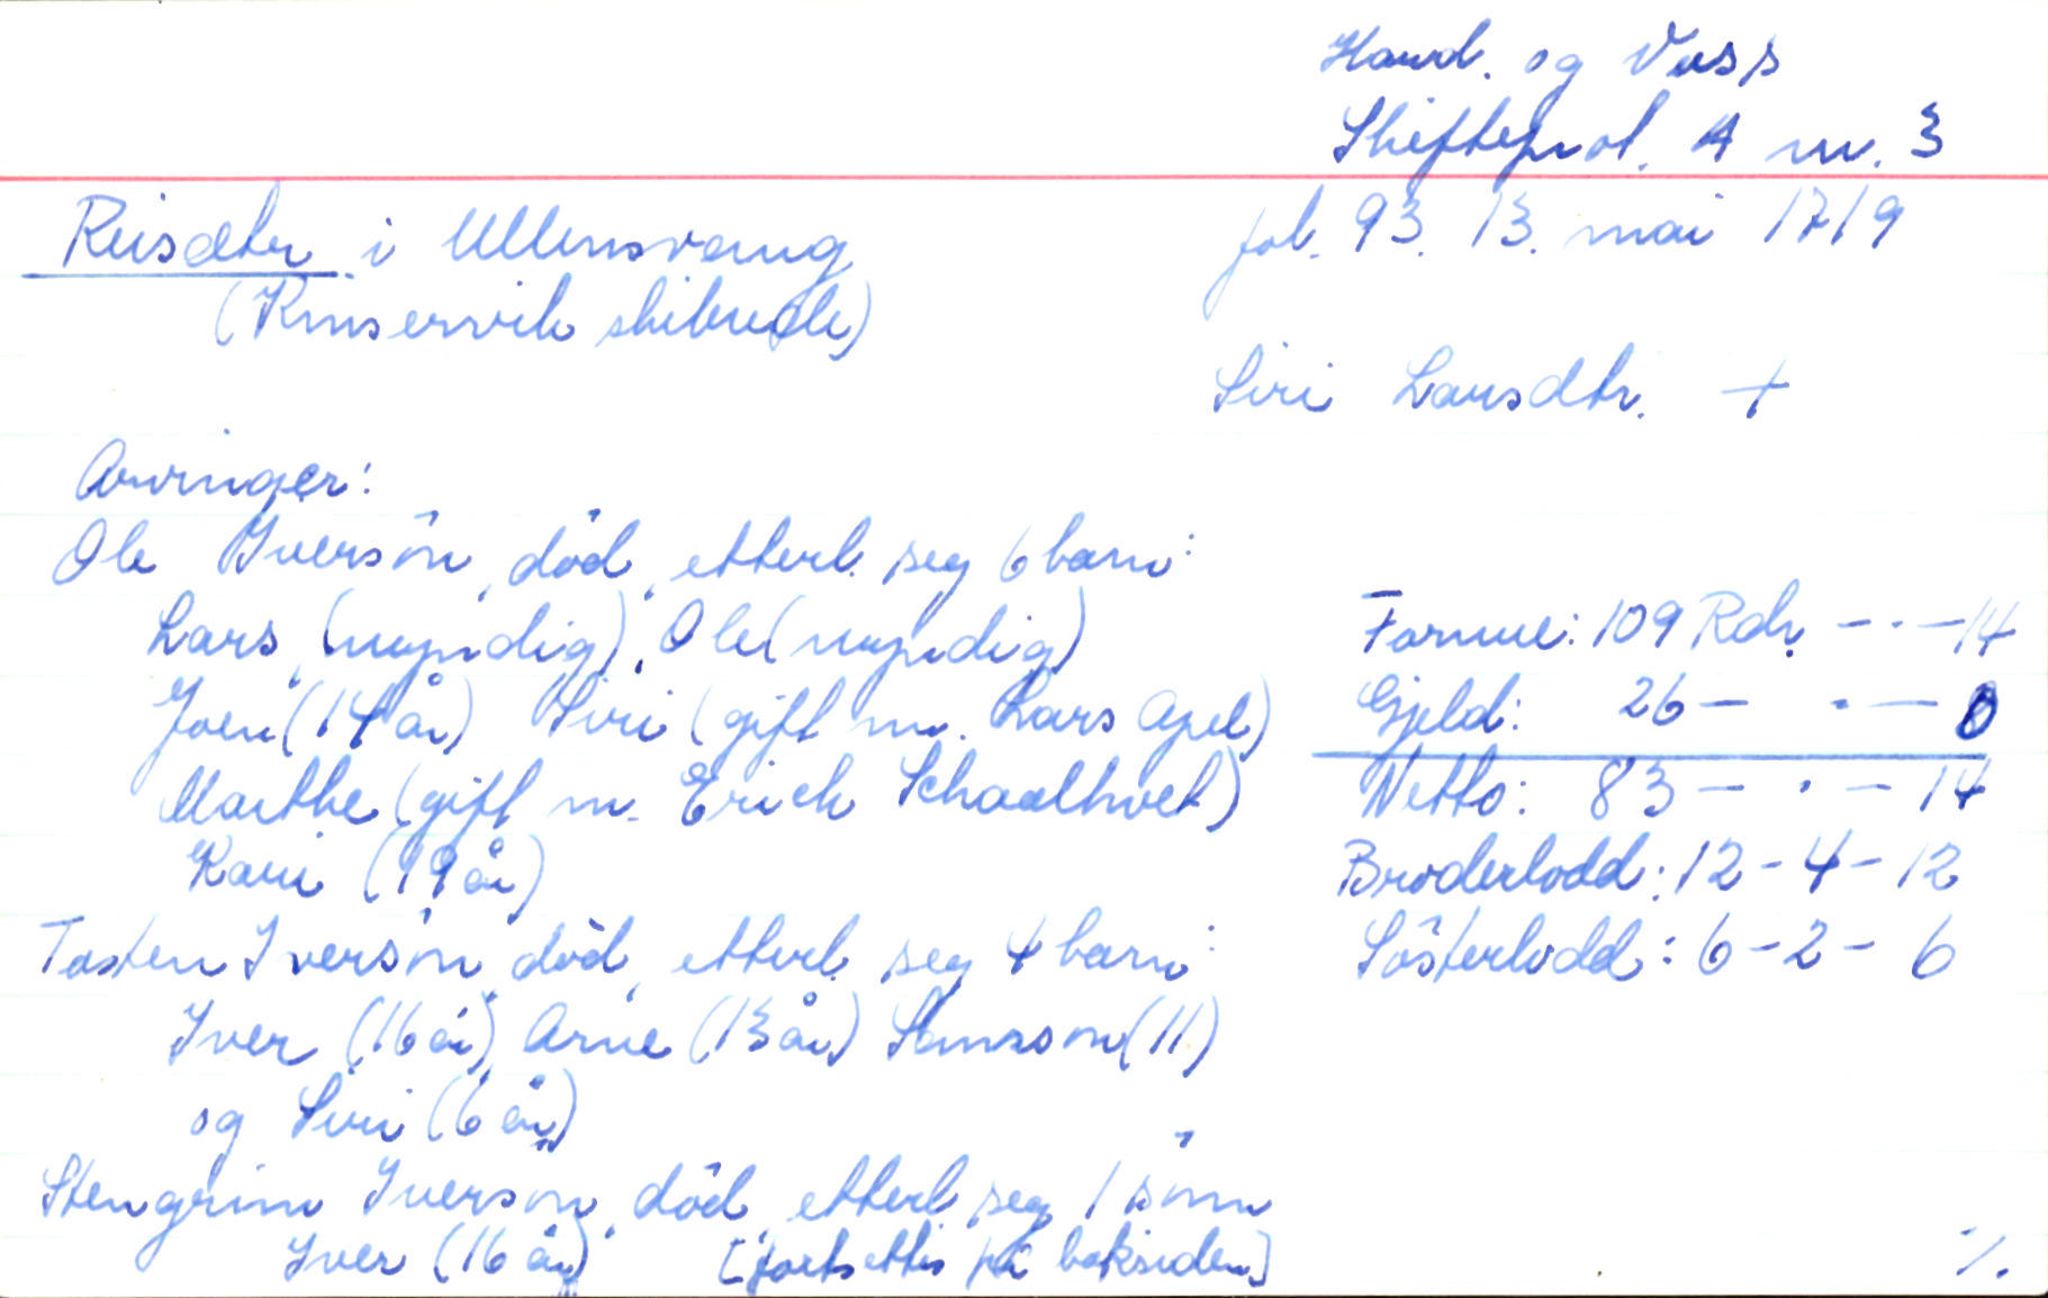 Hard. og Voss
Skifteprot. A nr. 3
Reisæter i Ullensvang
fol. 93. 13. mai 1719
(Kinservik skibrede)
Siri Larsdtr. +
Arvinger:
Ole Iversön, död, etterl. seg 6 barn:
Lars (myndig), Ole (myndig)
Formue: 109 Rdr. - - - 14
Joen (14 år) Siri (gift m. Lars Apel)
Gjeld: 26 - . - 0
Marthe (gift m. Erich Schaalthvet)
Netto: 83 - . - 14
Kari (19 år)
Broderlodd: 12 - 4 - 12
Tosten Iversön, död, etterl. seg 4 barn:
Sösterlodd: 6 - 2 - 6
Iver (16 år) Arne (13 år) Samson (11)
og Siri (6 år)
Stengrim Iversön, död, etterl. seg 1 sönn
Iver (16 år) [fortsettes på baksiden]
./.